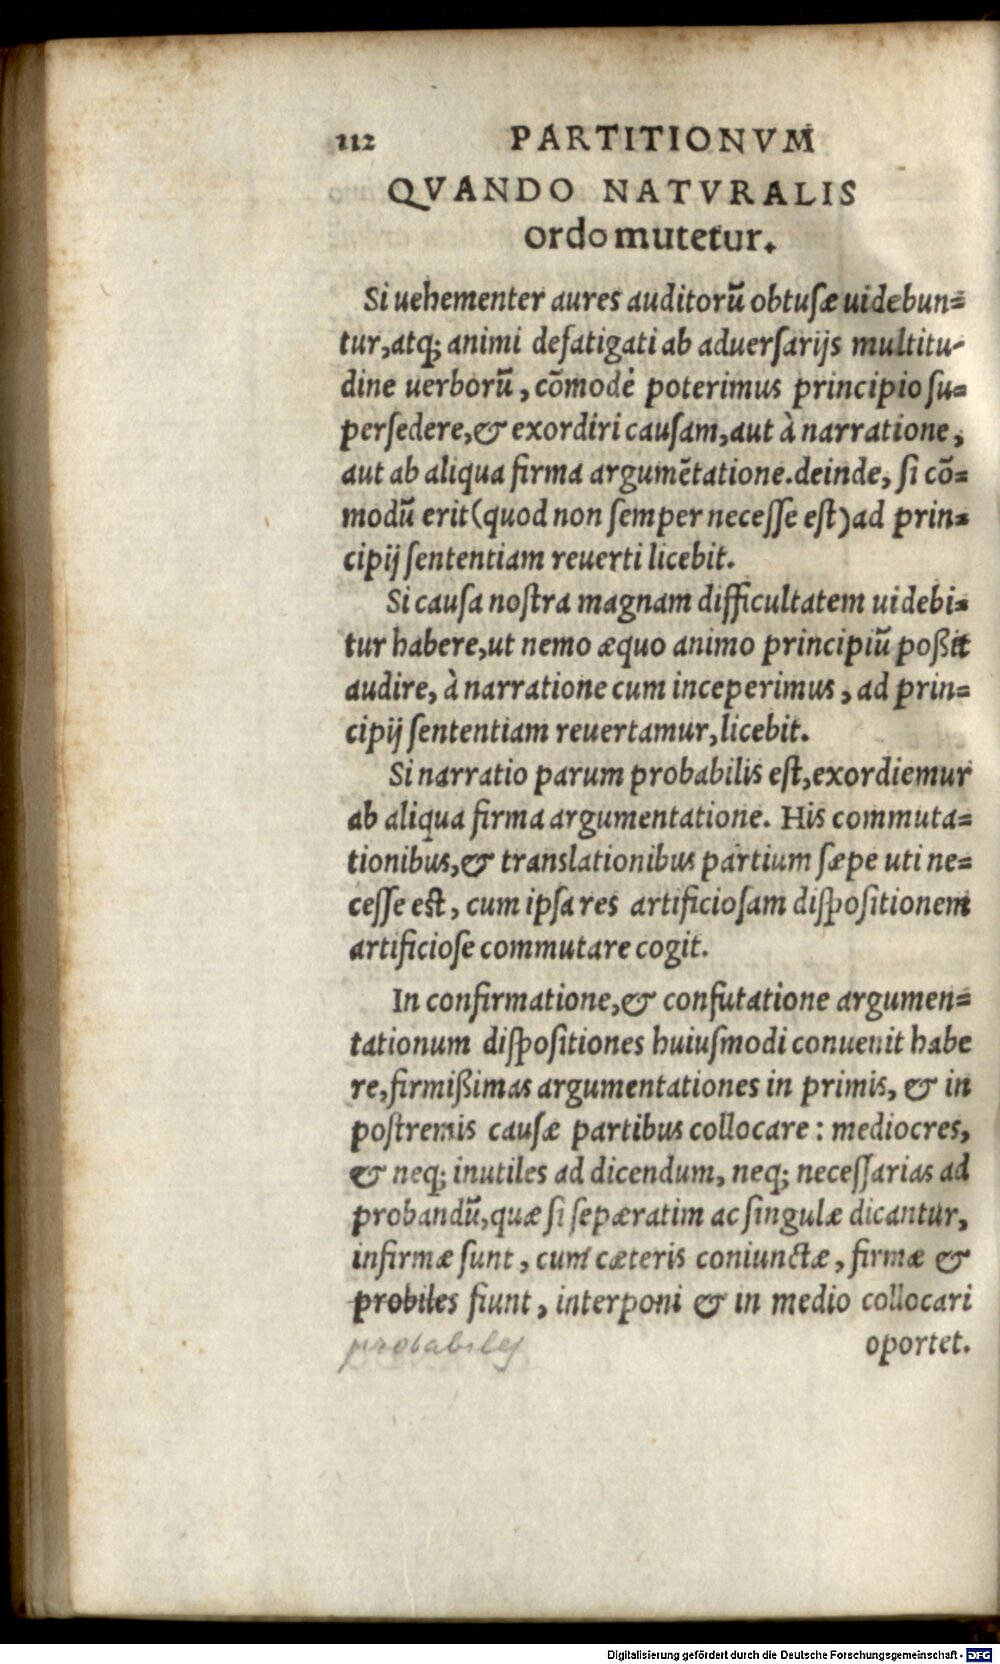 112 PARTITIONVM
QVANDO NATVRALIS
ordo mutetur.
Si uehementer aures auditorū obtuſæ uidebun=
tur, atq; animi defatigati ab aduerſarijs multitu-
dine uerborū, cōmodè poterimus principio ſu=
perſedere, & exordiri cauſam, aut à narratione,
aut ab aliqua firma argumētatione. deinde, ſi cō=
modū erit (quod non ſemper neceſſe eſt) ad prin=
cipij ſententiam reuerti licebit.
Si cauſa noſtra magnam difficultatem uidebi=
tur habere, ut nemo æquo animo principiū poßit
audire, à narratione cum inceperimus, ad prin=
cipij ſententiam reuertamur, licebit.
Si narratio parum probabilis eſt, exordiemur
ab aliqua firma argumentatione. His commuta=
tionibus, & translationibus partium ſæpe uti ne=
ceſſe eſt, cum ipſa res artificioſam diſpoſitionem
artificioſe commutare cogit.
In confirmatione, & confutatione argumen=
tationum diſpoſitiones huiuſmodi conuenit habe
re, firmißimas argumentationes in primis, & in
poſtremis cauſæ partibus collocare: mediocres,
& neq; inutiles ad dicendum, neq; neceſſarias ad
probandū, quæ ſi ſepæratim ac ſingulæ dicantur,
infirmæ ſunt, cum cæteris coniunctæ, firmæ &
probiles fiunt, interponi & in medio collocari
probabiles oportet.
Digitalisierung gefördert durch die Deutsche Forschungsgemeinschaft - DFG